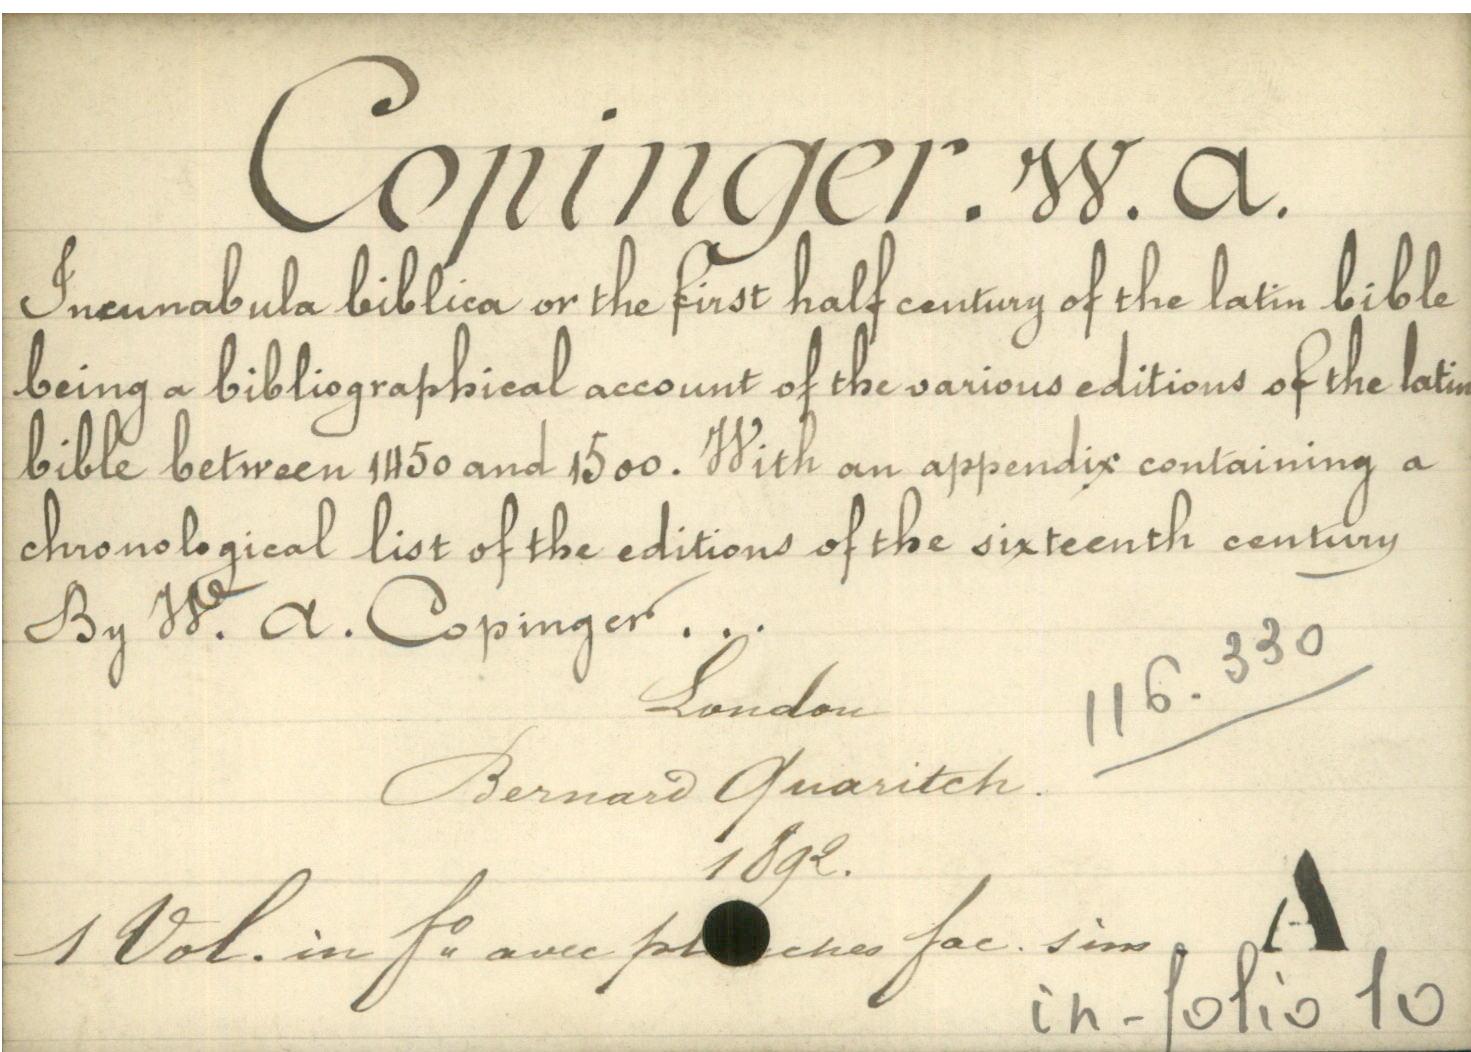 Copinger. W. A.
Incunabula biblica or the first half century of the latin bible
being a bibliographical account of the various editions of the latin
bible between 1450 and 1500. With an appendix containing a
chronological list of the editions of the sixteenth century
By W. A. Copinger ...
London
116.330
Bernard Quaritch.
1892.
1 Vol. in fo avec pl ches fac. sim.
A
in-folio 10